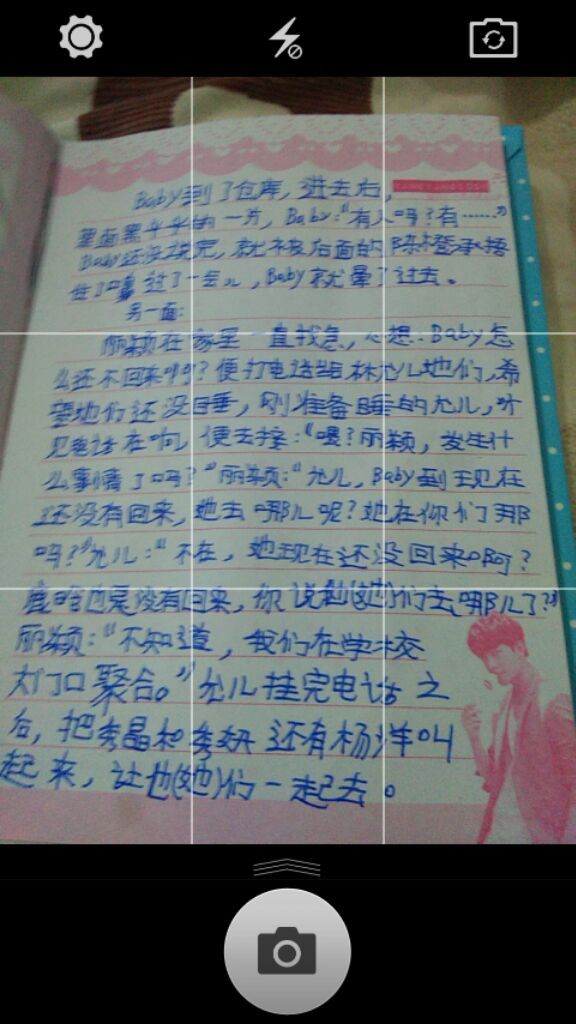 Baby到了仓库，进去后，
里面黑乎乎的一片，Baby："有人吗？有……"
Baby还没说完，就被后面的陈橙承捂
住了嘴 过了一会儿，Baby就晕了过去。
另一面：
丽颖在家里一直找急，心想：Baby怎
么还不回来啊？便打电话给林允儿她们，希
望她们还没睡，刚准备睡的允儿，听
见电话在响，便去接："喂？丽颖，发生什
么事情了吗？"丽颖："允儿，Baby到现在
还没有回来，她去哪儿呢？她在你们那
吗？"允儿："不在，她现在还没回来啊？
鹿晗也是没有回来，你说他(她)们去哪儿了？"
丽颖："不知道，我们在学校
大门口聚合。"允儿挂完电话之
后，把秀晶和秀妍还有杨洋叫
起来，让他(她)们一起去。